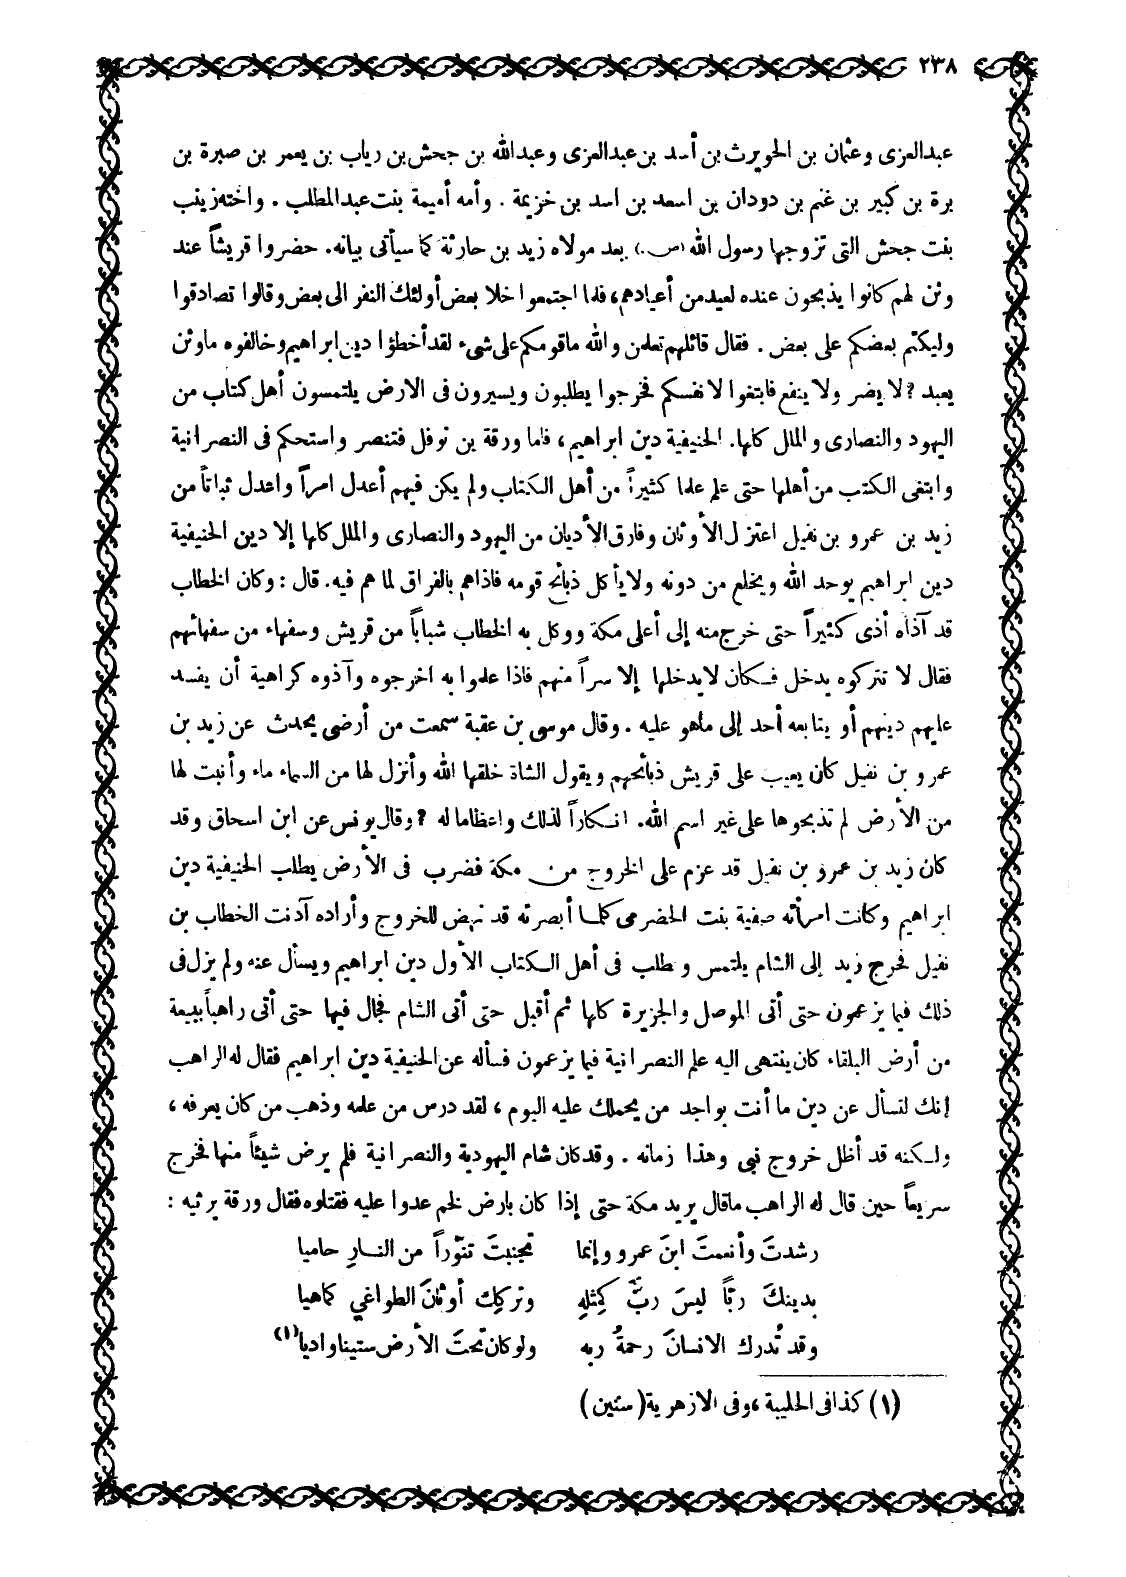 ٢٣٨
عبدالعزى وعثمان بن الحويرث بن أسد بن عبدالعزى وعبدالله بن جحش بن رياب بن يعمر بن صبرة بن
برة بن كبير بن غنم بن دودان بن اسعد بن اسد بن خزيمة . وأمه أميمة بنت عبدالمطلب . واخته زينب
بنت جحش التى تزوجها رسول الله (ص.) بعد مولاه زيد بن حارثة كما سيأتى بيانه. حضروا قريشاً عند
وثن لهم كانوا يذبحون عنده لعيد من أعيادهم، فلما اجتمعوا خلا بعض أولئك النفر الى بعض وقالوا تصادقوا
وليكتم بعضكم على بعض . فقال قائلهم تعلمن والله ماقومكم على شىء لقد أخطؤا دين ابراهيم وخالفوه ماوثن
يعبد ؟ لا يضر ولا ينفع فابتغوا لانفسكم فخرجوا يطلبون ويسيرون فى الارض يلتمسون أهل كتاب من
اليهود والنصارى والملل كلها. الحنيفية دين ابراهيم، فاما ورقة بن نوفل فتنصر واستحكم فى النصرانية
وابتغى الكتب من أهلها حتى علم علما كثيراً من أهل الكتاب ولم يكن فيهم أعدل امراً واعدل ثباتاً من
زيد بن عمرو بن نفيل اعتزل الأوثان وفارق الأديان من اليهود والنصارى والملل كلها إلا دين الحنيفية
دين ابراهيم يوحد الله ويخلع من دونه ولا يأكل ذبائح قومه فاذاهم بالفراق لما هم فيه. قال : وكان الخطاب
قد آذاه أذى كثيراً حتى خرج منه إلى أعلى مكة ووكل به الخطاب شباباً من قريش وسفهاء من سفهائهم
فقال لا تتركوه يدخل فكان لايدخلها إلا سراً منهم فاذا علموا به اخرجوه وآذوه كراهية أن يفسد
عليهم دينهم أو يتابعه أحد إلى ماهو عليه . وقال موسى بن عقبة سمعت من أرضى يحدث عن زيد بن
عمرو بن نفيل كان يعيب على قريش ذبائحهم ويقول الشاة خلقها الله وأنزل لها من السماء ماء وأنبت لها
من الأرض لم تذبحوها على غير اسم الله. انكاراً لذلك واعظاما له ؟ وقال يونس عن ابن اسحاق وقد
كان زيد بن عمرو بن نفيل قد عزم على الخروج من مكة فضرب فى الأرض يطلب الحنيفية دين
ابراهيم وكانت امرأته صفية بنت الحضرمى كلما أبصرته قد نهض للخروج وأراده آذنت الخطاب بن
نفيل فخرج زيد إلى الشام يلتمس وطلب فى أهل الكتاب الأول دين ابراهيم ويسأل عنه ولم يزل فى
ذلك فيما يزعمون حتى أتى الموصل والجزيرة كلها ثم أقبل حتى أتى الشام فجال فيها حتى أتى راهباً ببيعة
من أرض البلقاء كان ينتهى اليه علم النصرانية فيما يزعمون فسأله عن الحنيفية دين ابراهيم فقال له الراهب
إنك لتسأل عن دين ما أنت بواجد من يحملك عليه اليوم ، لقد درس من علمه وذهب من كان يعرفه ،
ولكنه قد أظل خروج نبى وهذا زمانه . وقد كان شام اليهودية والنصرانية فلم يرض شيئاً منها فخرج
سريعاً حين قال له الراهب ماقال يريد مكة حتى إذا كان بارض لخم عدوا عليه فقتلوه فقال ورقة يرثيه :
رشدتَ وأنعمتَ ابنَ عمرو وإنما تجنبتَ تنوّراً من النارِ حاميا
بدينكَ ربّاً ليسَ ربٌّ كمِثلهِ وتركِك أوثانَ الطواغي كماهيا
وقد تُدرك الانسانَ رحمةُ ربه ولو كان تحتَ الأرض ستينا واديا(١)
(١) كذا فى الحلبية، وفى الازهرية (ستين)